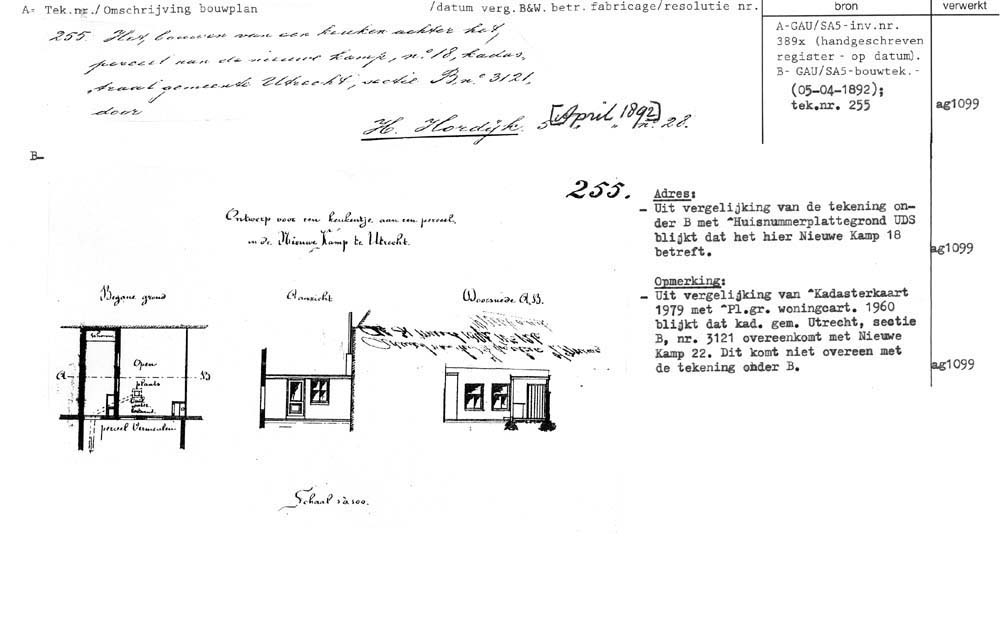 A= Tek.nr./Omschrijving bouwplan /datum verg.B&W.betr.fabricage/resolutie nr.
bron
verwerkt
255. Het bouwen van een keuken achter het
perceel aan de nieuwe Kamp, nº 18, kadas-
traal gemeente Utrecht, sectie B, nº 3121,
door
H. Hordijk. 5 [April 1892] nº 28.
A-GAU/SA5-inv.nr.
389x (handgeschreven
register - op datum).
B- GAU/SA5-bouwtek.-
(05-04-1892);
tek.nr. 255
ag1099
B-
255.
Ontwerp voor een keukentje aan een perceel,
in de Nieuwe Kamp te Utrecht.
Adres:
- Uit vergelijking van de tekening on-
der B met ^Huisnummerplattegrond UDS
blijkt dat het hier Nieuwe Kamp 18
betreft.
ag1099
Opmerking:
- Uit vergelijking van ^Kadasterkaart
1979 met ^Pl.gr. woningcart. 1960
blijkt dat kad. gem. Utrecht, sectie
B, nr. 3121 overeenkomt met Nieuwe
Kamp 22. Dit komt niet overeen met
de tekening onder B.
ag1099
Begane grond
Aanzicht
Doorsnede A.B.
A
Open
plaats
B
perceel
Schaal 1 à 100.